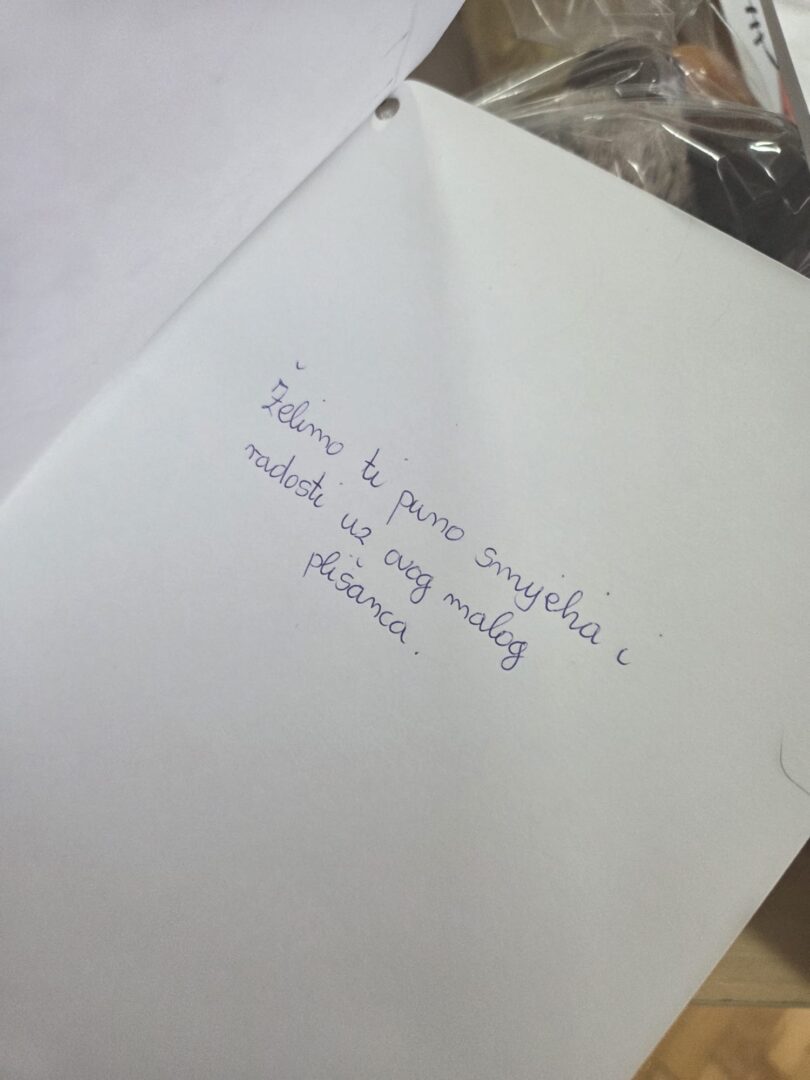 Želimo ti puno smijeha i
radosti uz ovog malog
plišanca.